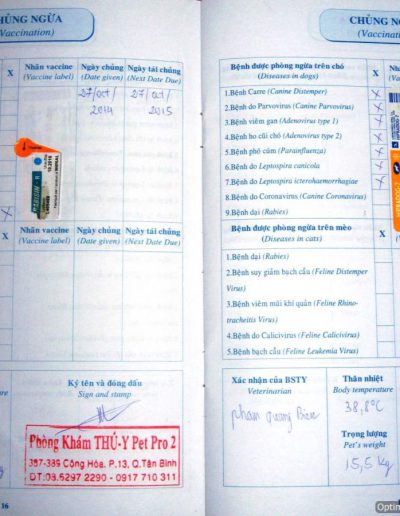 CHỦNG NGỪA
(Vaccination)
Nhãn vaccine
(Vaccine label)
Ngày chủng
(Date given)
Ngày tái chủng
(Next Date Due)
27/oct/
2014
27/oct/
2015
X
Nhãn vaccine
(Vaccine label)
Ngày chủng
(Date given)
Ngày tái chủng
(Next Date Due)
Ký tên và đóng dấu
Sign and stamp
Phòng Khám THÚ-Y Pet Pro 2
387-389 Cộng Hòa, P.13, Q.Tân Bình
ĐT:08.6297 2290 - 0917 710 311
16
CHỦNG NG
(Vaccinati
Bệnh được phòng ngừa trên chó
(Diseases in dogs)
X
1.Bệnh Care (Canine Distemper)
2.Bệnh do Parvovirus (Canine Parvovirus)
3.Bệnh viêm gan (Adenovirus type 1)
4.Bệnh ho cũi chó (Adenovirus type 2)
5.Bệnh phó cúm (Parainfluenza)
6.Bệnh do Leptospira canicola
7.Bệnh do Leptospira icterohaemorrhagiae
8.Bệnh do Coronavirus (Canine Coronavirus)
9.Bệnh dại (Rabies)
Bệnh được phòng ngừa trên mèo
(Diseases in cats)
X
1.Bệnh dại (Rabies)
2.Bệnh suy giảm bạch cầu (Feline Distemper
Virus)
3.Bệnh viêm mũi khí quản (Feline Rhino-
tracheitis Virus)
4.Bệnh do Calicivirus (Feline Calicivirus)
5.Bệnh bạch cầu (Feline Leukemia Virus)
Xác nhận của BSTY
Veterinarian
Thân nhiệt
Body temperature
38,8°C
Trọng lượng
Pet's weight
15,5 kg